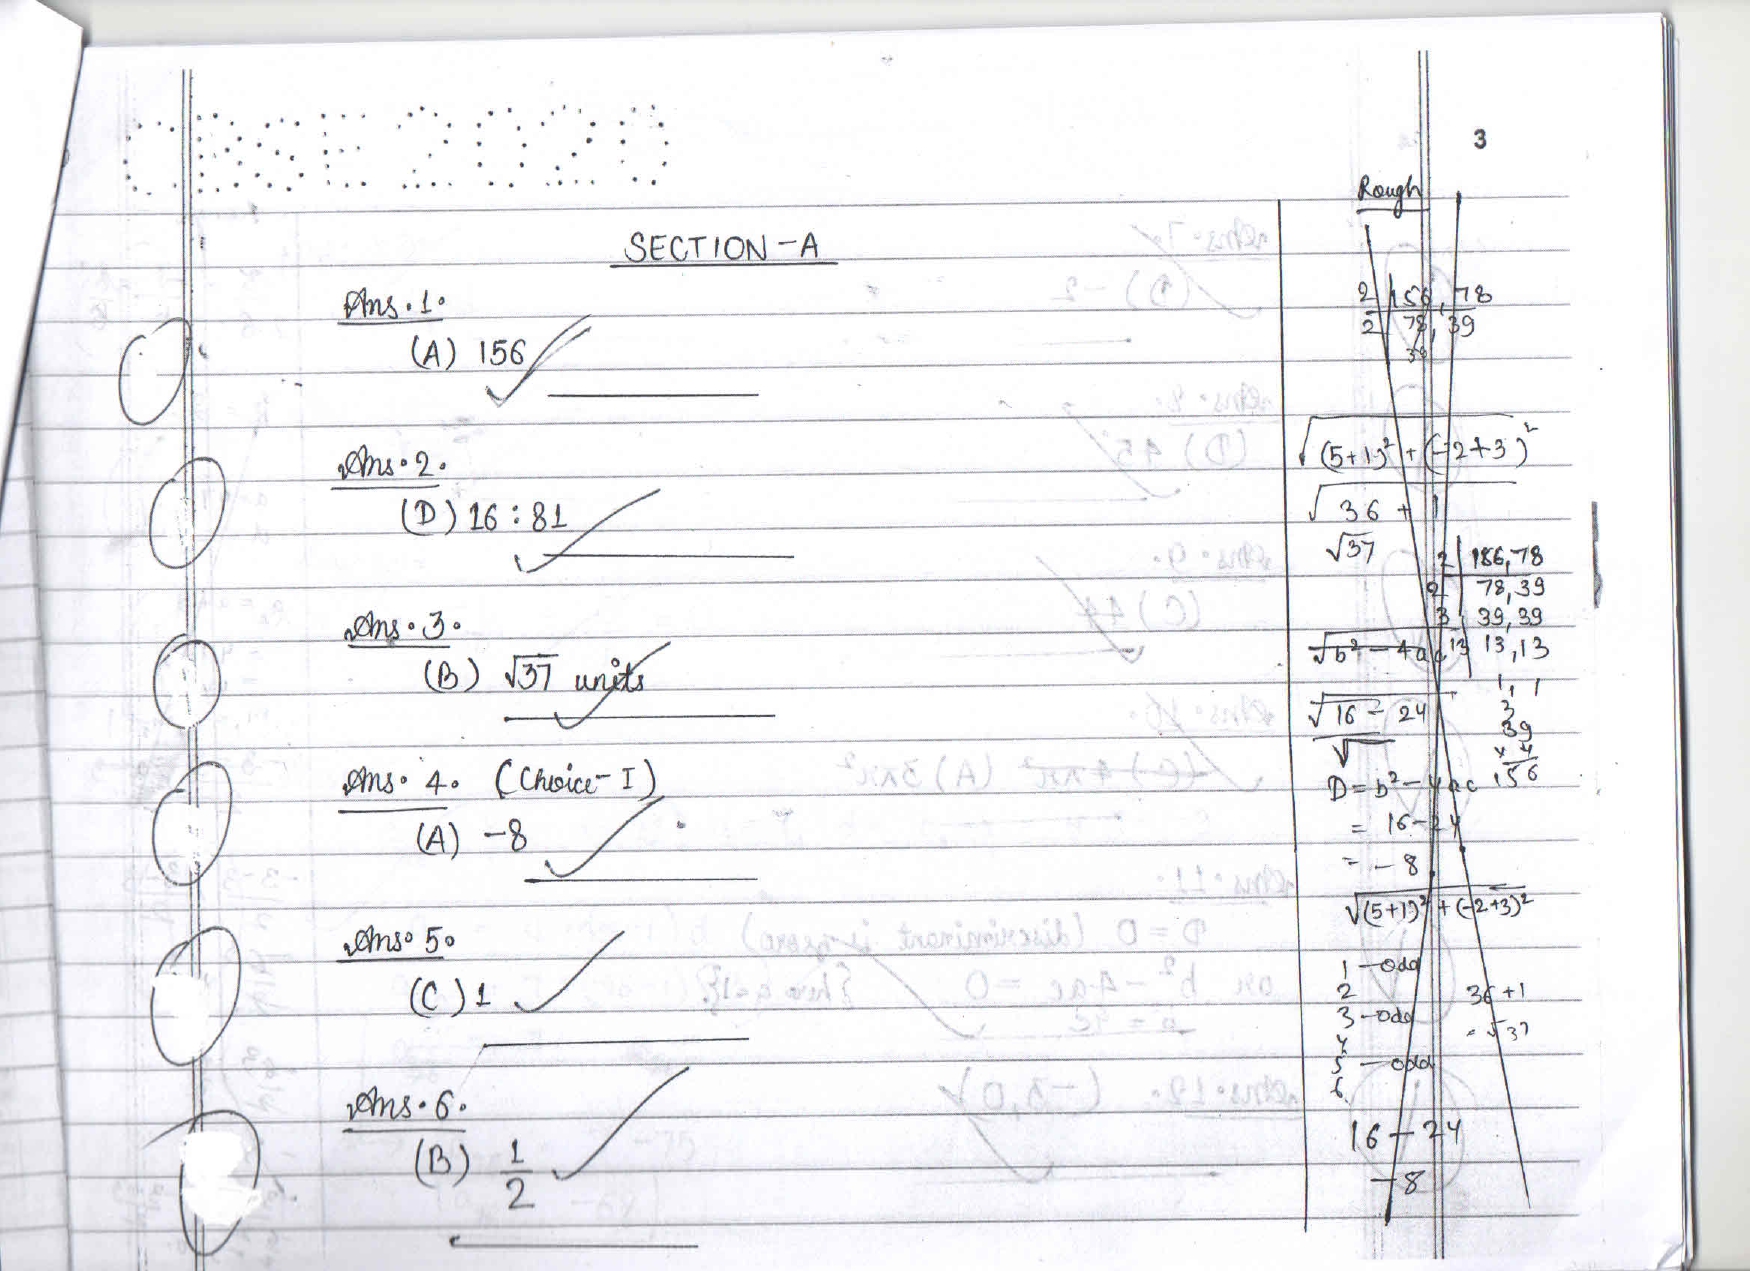 CBSE 2020
3
SECTION-A
Ans. 1.
(A) 156
Ans. 2.
(D) 16 : 81
Ans. 3.
(B) √37 units
Ans. 4. (Choice-I)
(A) -8
Ans. 5.
(C) 1
Ans. 6.
(B) 1/2
Rough
2 156, 78
2 78, 39
39
√(5+1)² + (-2+3)²
√36 + 1
√37
2 156, 78
2 78, 39
3 39, 39
13 13, 13
1, 1
√b² - 4ac
√16 - 24
√
3
39
× 4
156
D = b² - 4ac
= 16 - 24
= -8
√(5+1)² + (-2+3)²
1 - odd
2
3 - odd
4
5 - odd
6.
36 + 1
= √37
16 - 24
-8